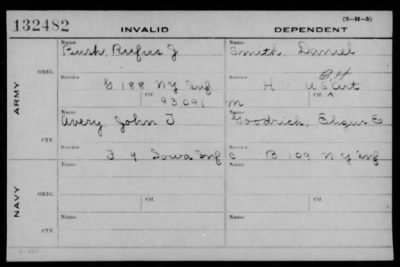 132482
INVALID DEPENDENT (3-H-5)
ARMY
ORIG.
Name Name
Bush, Rufus J Smith, Daniel
Service Service B.H.
G 188 NY Inf H U S Art
Ctf. Ctf.
93091 m
CTF.
Name Name
Avery, John T Goodrich, E
Service Service
I 9 Iowa Inf C B 109 N Y Inf
NAVY
ORIG.
Name Name
Service Service
Ctf. Ctf.
CTF.
Name Name